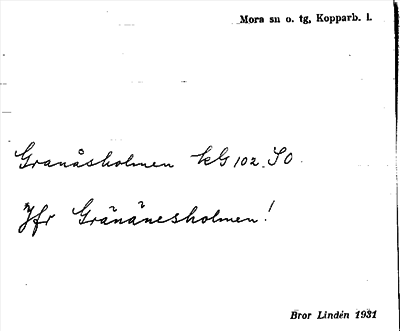 Mora sn o. tg, Kopparb. l.
Granåsholmen kG 102. SO.
Jfr Gränänesholmen!
Bror Lindén 1931